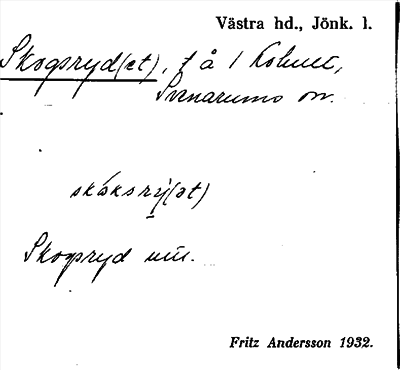 Västra hd., Jönk. l.
Skogsryd(et), f å 1
Svenarums
skåksrý(ət)
Skogsryd
Fritz Andersson 1932.